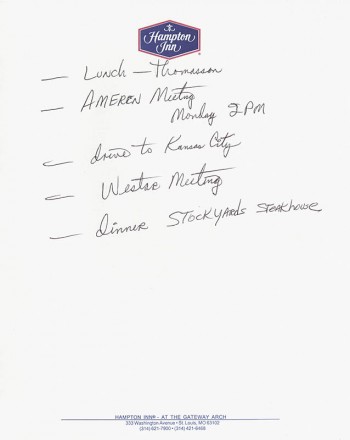 Hampton
Inn
— Lunch — Thomasson
— AMEREN Meeting
Monday 2 PM
— drive to Kansas City
— Westar Meeting
— Dinner STOCKYARDS Steakhouse
HAMPTON INN® - AT THE GATEWAY ARCH
333 Washington Avenue • St. Louis, MO 63102
(314) 621-7900 • (314) 421-6468